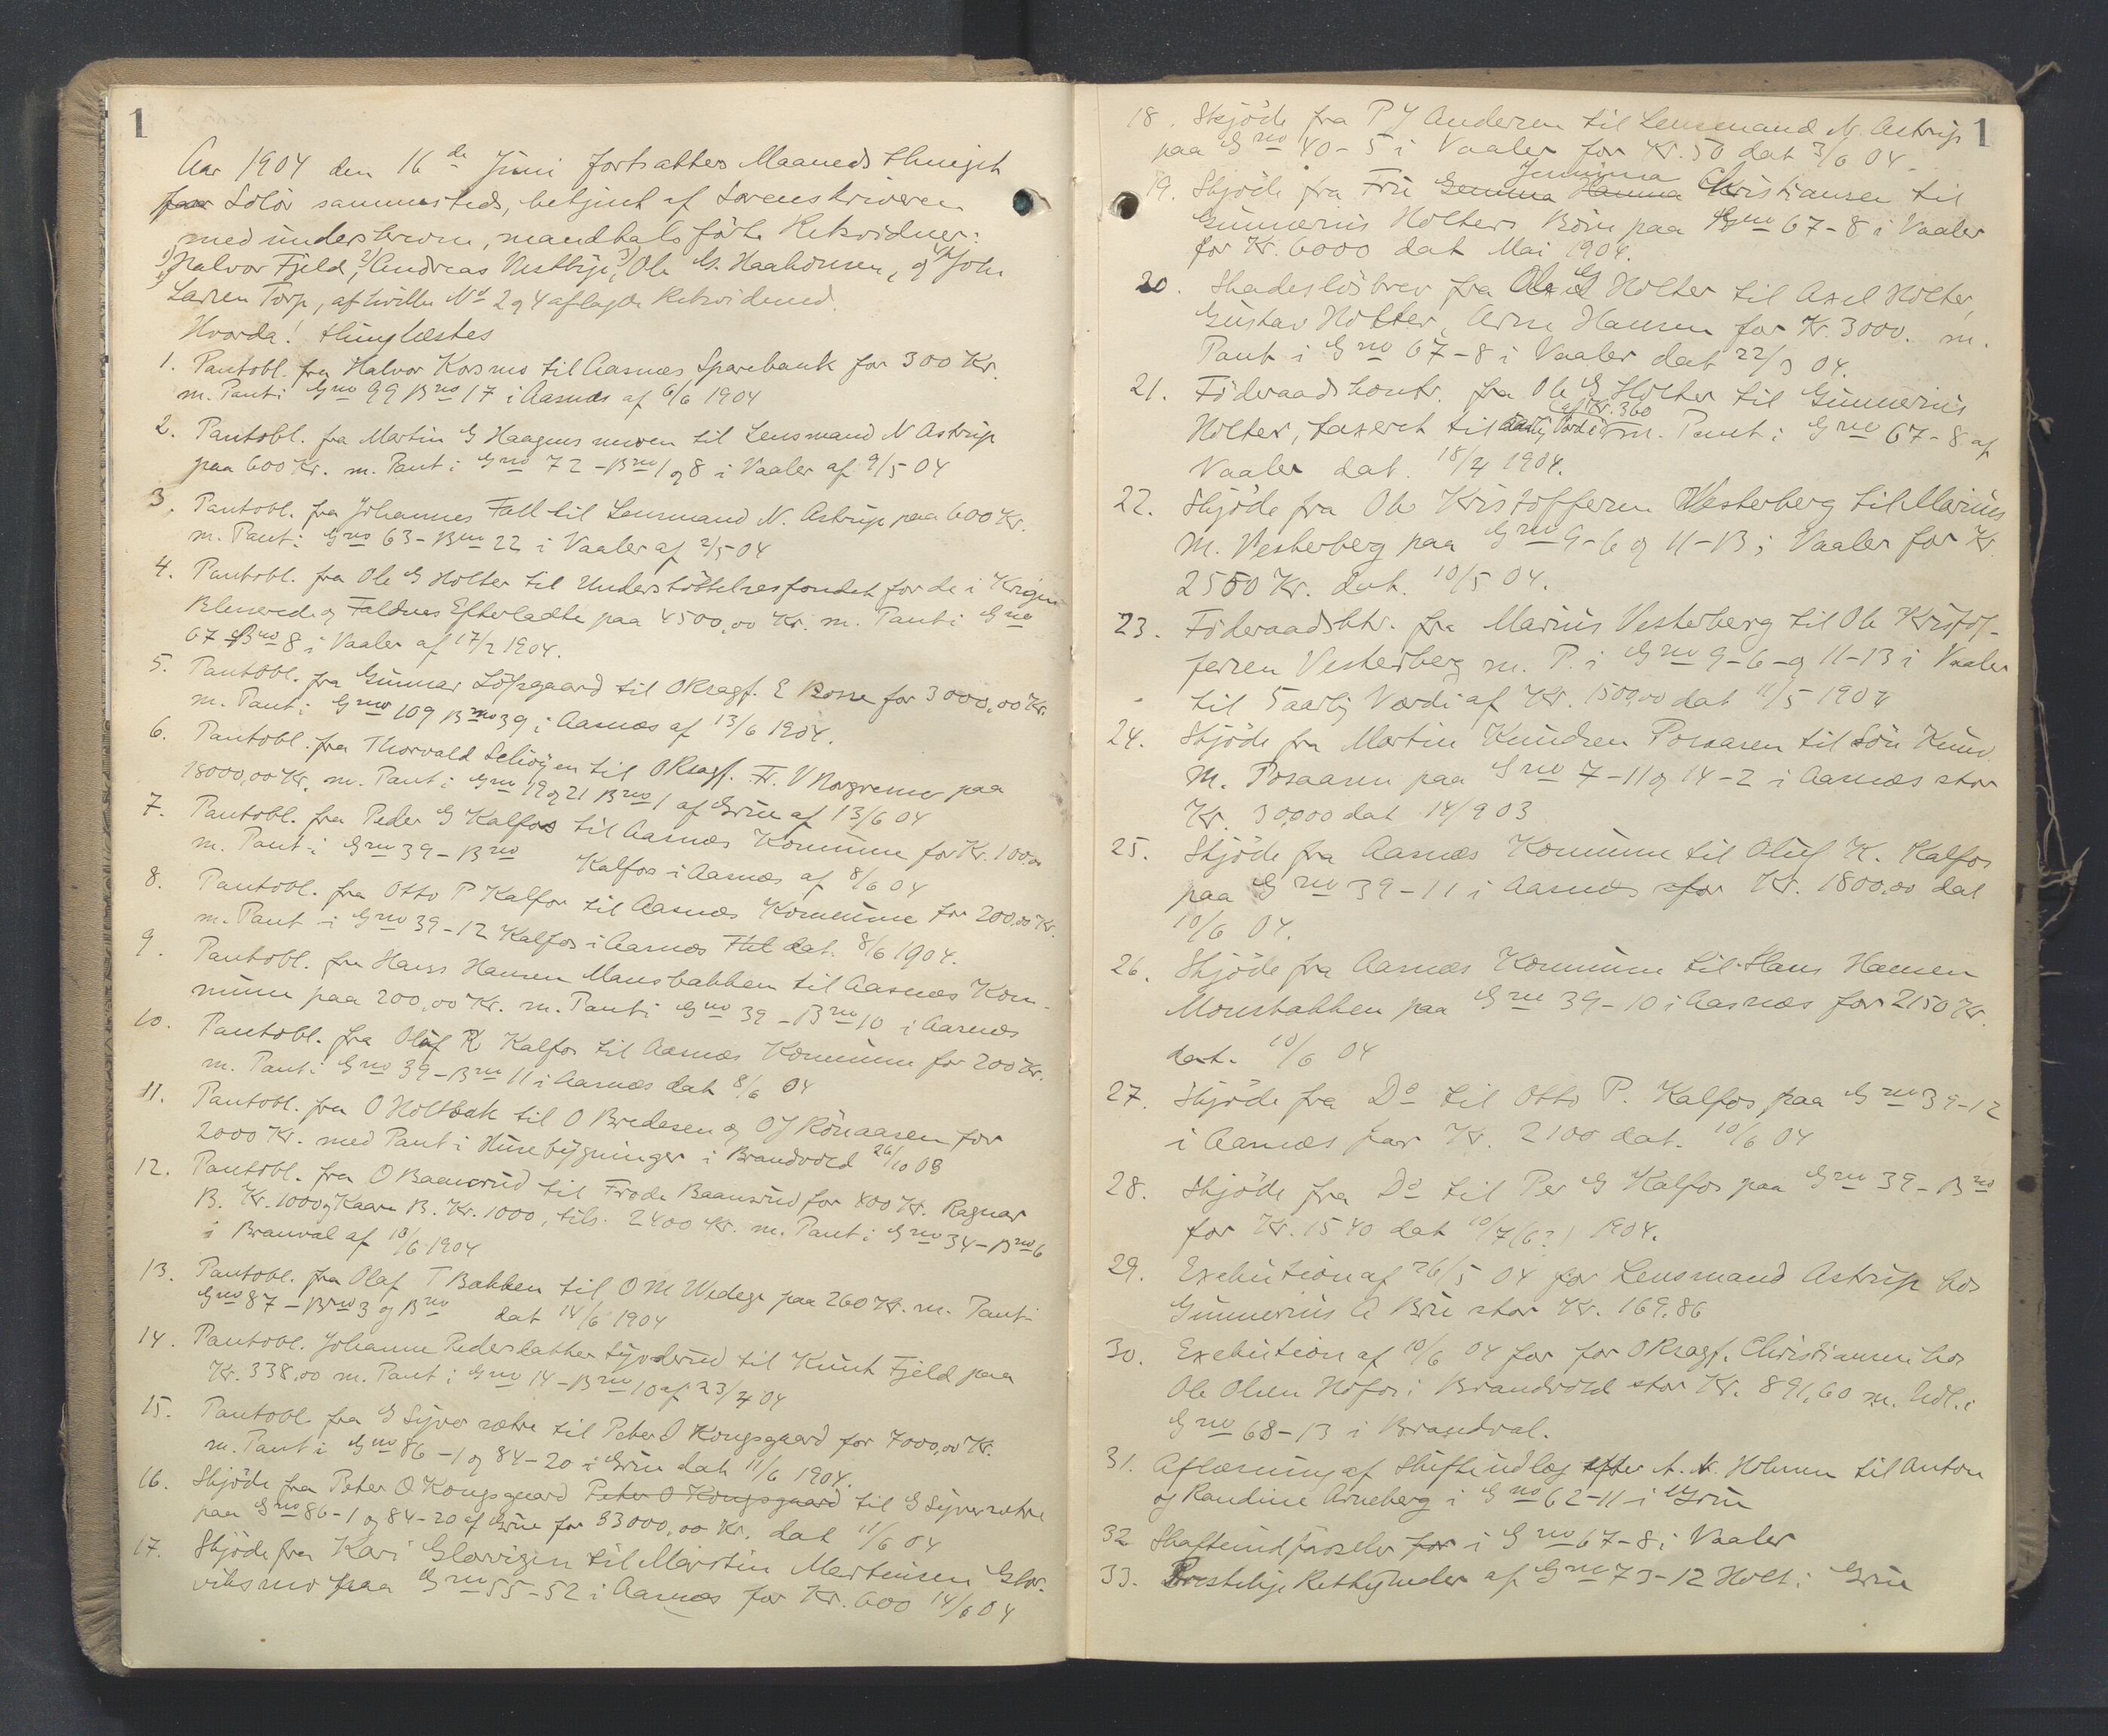 1
Aar 1904 den 16de Juni fortsattes Maanedsthinget
for Solör sammesteds, betjent af Sorenskriveren
med underskrevne, mandtalsförte Retsvidner:
1) Halvor Fjeld, 2) Andreas Vestbye, 3) Ole G. Haakonsen, og 4) John
Larsen Torp, af hvilke No 2 og 4 aflagde Retsvidneed.
Hvorda! thinglæstes
1. Pantobl. fra Halvor Kosmo til Aasnæs Sparebank for 300 Kr.
m. Pant i Gno 99 Bno 17 i Aasnæs af 6/6 1904
2. Pantobl. fra Martin G Haagensmoen til Lensmand N Astrup
paa 600 Kr. m. Pant i Gno 72 - Bno 1 og 8 i Vaaler af 9/5 04
3. Pantobl. fra Johannes Fall til Lensmand N. Astrup paa 600 Kr.
m. Pant i Gno 63 - Bno 22 i Vaaler af 2/5 04
4. Pantobl. fra Ole G Holter til Understöttelsesfondet for de i Krigen
Blesserede og Faldnes Efterladte paa 4500,00 Kr. m. Pant i Gno
67 Bno 8 i Vaaler af 17/2 1904.
5. Pantobl. fra Gunnar Löfsgaard til ORsagf. E Bosse for 3000,00 Kr.
m. Pant i Gno 109 Bno 39 i Aasnæs af 13/6 1904.
6. Pantobl. fra Thorvald Schöyen til ORsagf. Fr. V Norgrenner paa
18000,00 Kr. m. Pant i Gno 19 og 21 Bno 1 af Grue af 13/6 04
7. Pantobl. fra Peder G Kalfos til Aasnæs Kommune for Kr. 100,00
m. Pant i Gno 39 - Bno Kalfos i Aasnæs af 8/6 04
8. Pantobl. fra Otto P Kalfos til Aasnæs Kommune for 200,00 Kr.
m. Pant i Gno 39-12 Kalfos i Aasnæs dat. 8/6 1904.
9. Pantobl. fra Hans Hansen Mausbakken til Aasnæs Kom-
mune paa 200,00 Kr. m. Pant i Gno 39 - Bno 10 i Aasnæs
10. Pantobl. fra Oluf K Kalfos til Aasnæs Kommune for 200 Kr.
m. Pant i Gno 39 - Bno 11 i Aasnæs dat 8/6 04
11. Pantobl. fra O Holtbak til O Bredesen og OJ Rönaasen for
2000 Kr. med Pant i Husebygninger i Brandvold 26/10 03
12. Pantobl. fra O Baanrud til Frode Baanrud for 400 Kr. Ragnar
B. Kr. 1000 og Kaare B. Kr. 1000, tils. 2400 Kr. m. Pant i Gno 34 - Bno 6
i Branval af 10/6 1904
13. Pantobl. fra Olaf T Bakken til O M Wedege paa 260 Kr. m. Pant i
Gno 87 - Bno 3 og Bno dat 14/6 1904
14. Pantobl. Johanne Pedersdatter til Knut Fjeld paa
Kr. 338,00 m. Pant i Gno 14 - Bno 10 af 23/4 04
15. Pantobl. fra G Syversætre til Peter O Kongsgaard for 7000,00 Kr.
m. Pant i Gno 86-1 og 84-20 i Grue dat 11/6 1904.
16. Skjöde fra Peter O Kongsgaard Peter O Kongsgaard til G Syversætre
paa Gno 86-1 og 84-20 af Grue for 33000,00 Kr. dat 11/6 04
17. Skjöde fra Kari Glorvigen til Martin Martinsen Glor-
viksmo paa Gno 55-52 i Aasnæs for Kr. 600 14/6 04
1
18. Skjöde fra P J Andersen til Lensmand N. Astrup
paa Gno 40-5 i Vaaler for Kr. 50 dat 3/6 04
Jemima
19. Skjöde fra Fru Gemma Hanna Christiansen til
Gunnerius Holters Börn paa Gno 67-8 i Vaaler
for Kr. 6000 dat Mai 1904.
20. Skadeslösbrev fra Ole G Holter til Axel Holter,
Gustav Holter, Arne Hansen for Kr. 3000. m.
Pant i Gno 67-8 i Vaaler dat 22/3 04.
21. Föderaadskontr. fra Ole G Holter til Gunnerius
af Kr. 360
Holter, taxeret til aarlig Værdi m. Pant i Gno 67-8 af
Vaaler dat. 18/4 1904.
22. Skjöde fra Ole Kristoffersen Vesterberg til Marius
M. Vesterberg paa Gno 9-6 og 11-13 i Vaaler for Kr.
2550 Kr. dat. 10/5 04.
23. Föderaadsktr. fra Marius Vesterberg til Ole Kristof-
fersen Vesterberg m. P. i Gno 9-6 og 11-13 i Vaaler
til 5 aarlig Værdi af Kr. 1500,00 dat 11/5 1904
24. Skjöde fra Martin Knudsen Posaasen til Sön Knud
M. Posaasen paa Gno 7-11 og 14-2 i Aasnæs stor
Kr. 30,000 dat 14/9 03
25. Skjöde fra Aasnæs Kommune til Oluf K. Kalfos
paa Gno 39-11 i Aasnæs for Kr. 1800,00 dat
10/6 04.
26. Skjöde fra Aasnæs Kommune til Hans Hansen
Mousbakken paa Gno 39-10 i Aasnæs for 2150 Kr.
dat. 10/6 04
27. Skjöde fra Do til Otto P. Kalfos paa Gno 39-12
i Aasnæs for Kr. 2100 dat. 10/6 04
28. Skjöde fra Do til Per G Kalfos paa Gno 39 - Bno
for Kr. 1540 dat 10/7 (6?) 1904.
29. Exekution af 26/5 04 for Lensmand Astrup hos
Gunnerius A Bru stor Kr. 169,86
30. Exekution af 10/6 04 for for ORsagf. Christiansen hos
Ole Olsen Hofos i Brandvold stor Kr. 891,60 m. Udl. i
Gno 68-13 i Brandval.
31. Aflæsning af Skifteudlæg efter A. N. Holmen til Anton
og Randine Arneberg i Gno 62-11 i Grue
32 Skifteudförsler for i Gno 67-8 i Vaaler
33. Rettigheder af Gno 73-12 Holt i Grue